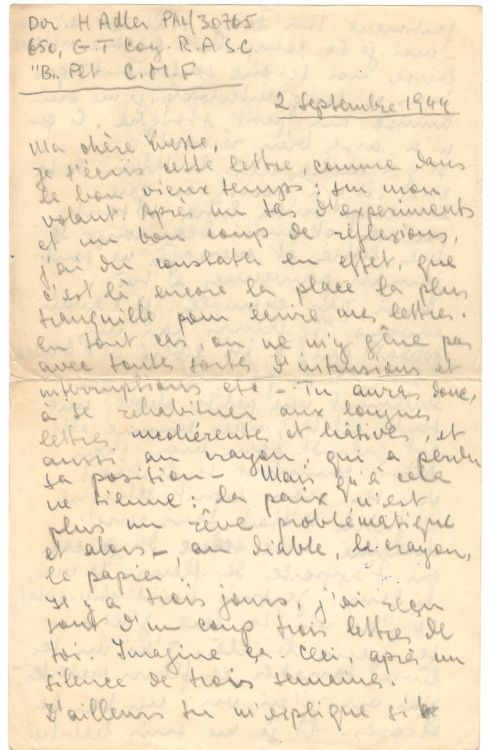 Dvr. H Adler PAL/30765
650, G.T Coy. R.A.S.C
"B" Plt C.M.F
2 Septembre 1944
Ma chère Yvette,
je t'écris cette lettre, comme dans
le bon vieux temps: sur mon
volant. Après un tas d'experiments
et un bon coup de réflexions,
j'ai du constater en effet, que
c'est là encore la place la plus
tranquille pour écrire mes lettres.
En tout cas, on ne m'y gêne pas
avec toutes sortes d'intrusions et
interruptions etc - Tu auras donc,
à te rehabituer aux longues
lettres incohérentes et hâtives, et
aussi au crayon, qui a perdu
sa position - Mais qu'à cela
ne tienne: la paix n'est
plus un rêve problématique
et alors - au diable, le crayon,
le papier!
Il y a trois jours, j'ai reçu
tout d'un coup trois lettres de
toi. Imagine ça. Ceci, après un
silence de trois semaines.
D'ailleurs tu m'explique si